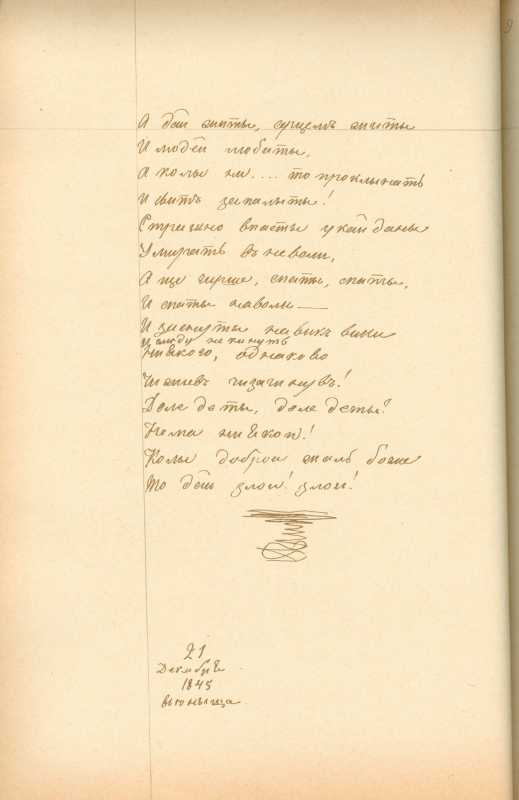 А дай жыты, сердцемъ жыты
И людей любыты,
А колы ни.... то проклынать
И свитъ запалыты!
Страшно впасты у кайданы
Умирать въ неволи,
А ще гирше, спаты, спаты,
И спаты на воли —
И заснуты на викъ вики
И слиду не кинуть
Ниякого, однаково
Чи жывъ чи загинувъ!
Доле де ты, доле де ты?
Нема ниякои!
Колы доброи жаль боже
То дай злои! злои!
21
Декабря
1845
Вьюныща